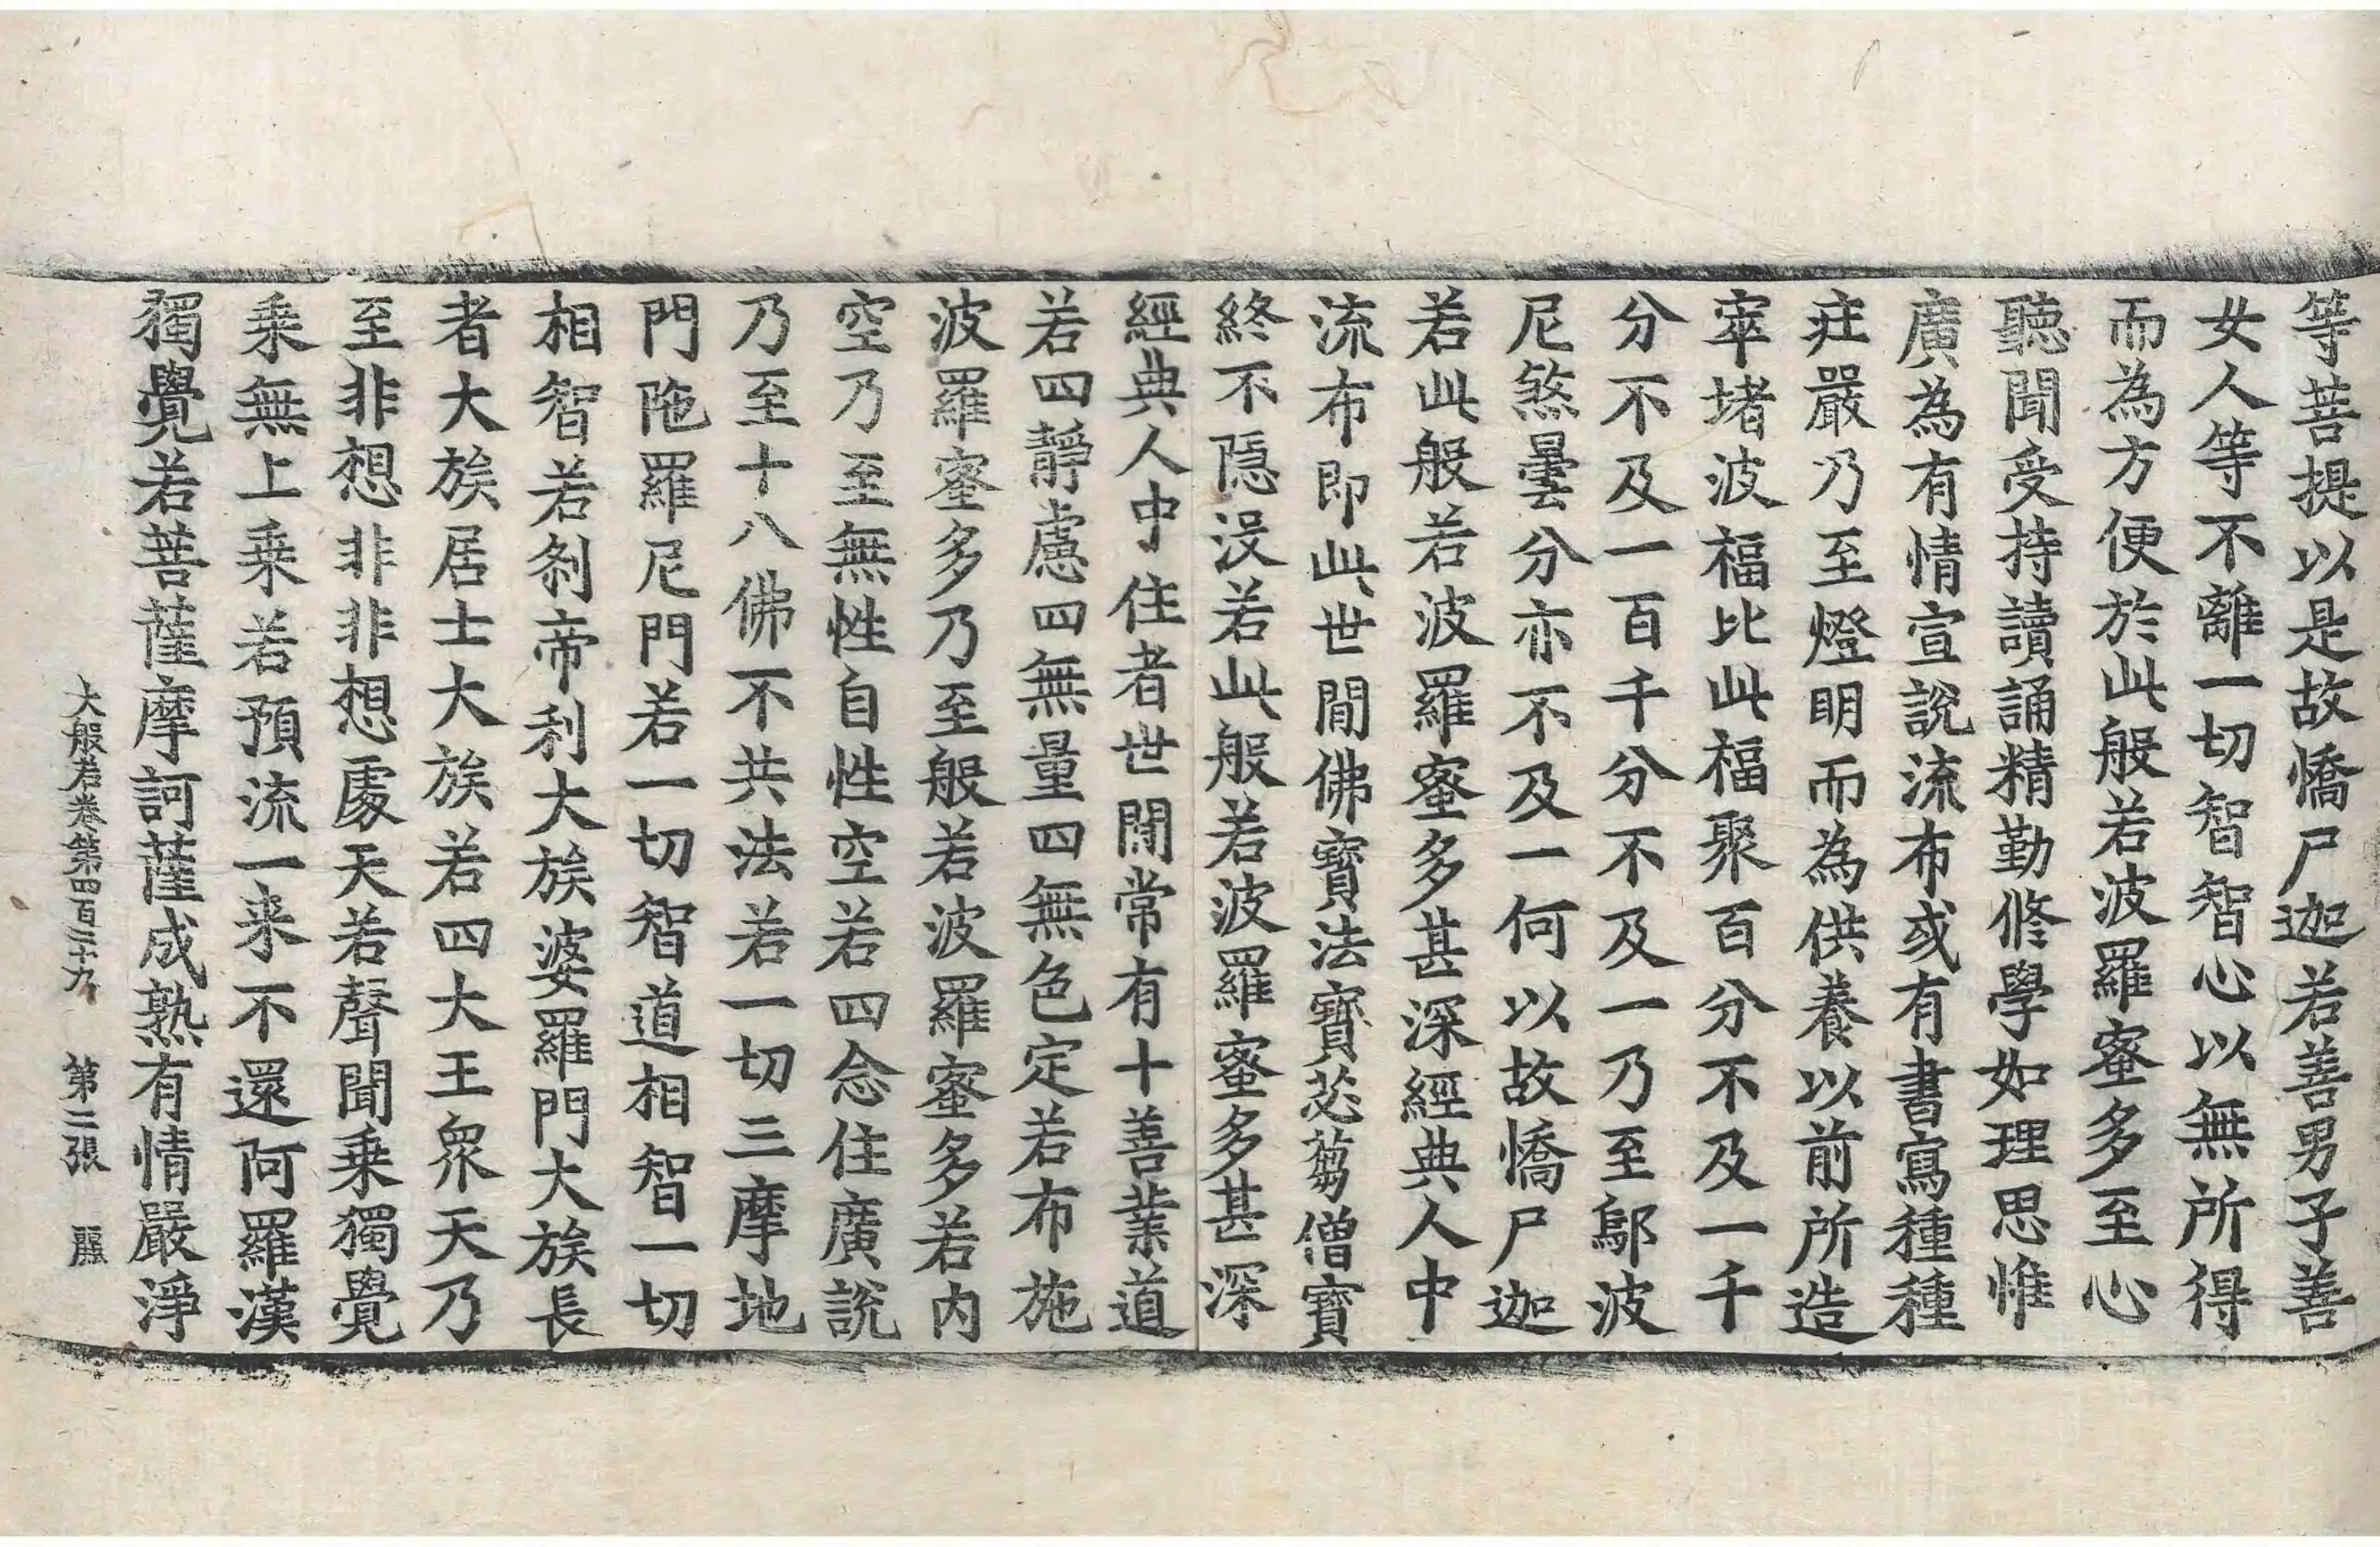 等菩提以是故憍尸迦若善男子善
女人等不離一切智智心以無所得
而為方便於此般若波羅蜜多至心
聽聞受持讀誦精勤脩學如理思惟
廣為有情宣說流布或有書寫種種
莊嚴乃至燈明而為供養以前所造
窣堵波福比此福聚百分不及一千
分不及一百千分不及一乃至鄔波
尼煞曇分亦不及一何以故憍尸迦
若此般若波羅蜜多甚深經典人中
流布即此世間佛寶法寶苾芻僧寶
終不隱沒若此般若波羅蜜多甚深
經典人中住者世間常有十善業道
若四靜慮四無量四無色定若布施
波羅蜜多乃至般若波羅蜜多若內
空乃至無性自性空若四念住廣說
乃至十八佛不共法若一切三摩地
門陁羅尼門若一切智道相智一切
相智若剎帝利大族婆羅門大族長
者大族居士大族若四大王眾天乃
至非想非非想處天若聲聞乘獨覺
乘無上乘若預流一来不還阿羅漢
獨覺若菩薩摩訶薩成熟有情嚴淨
大般若卷第四百二十九 第二張